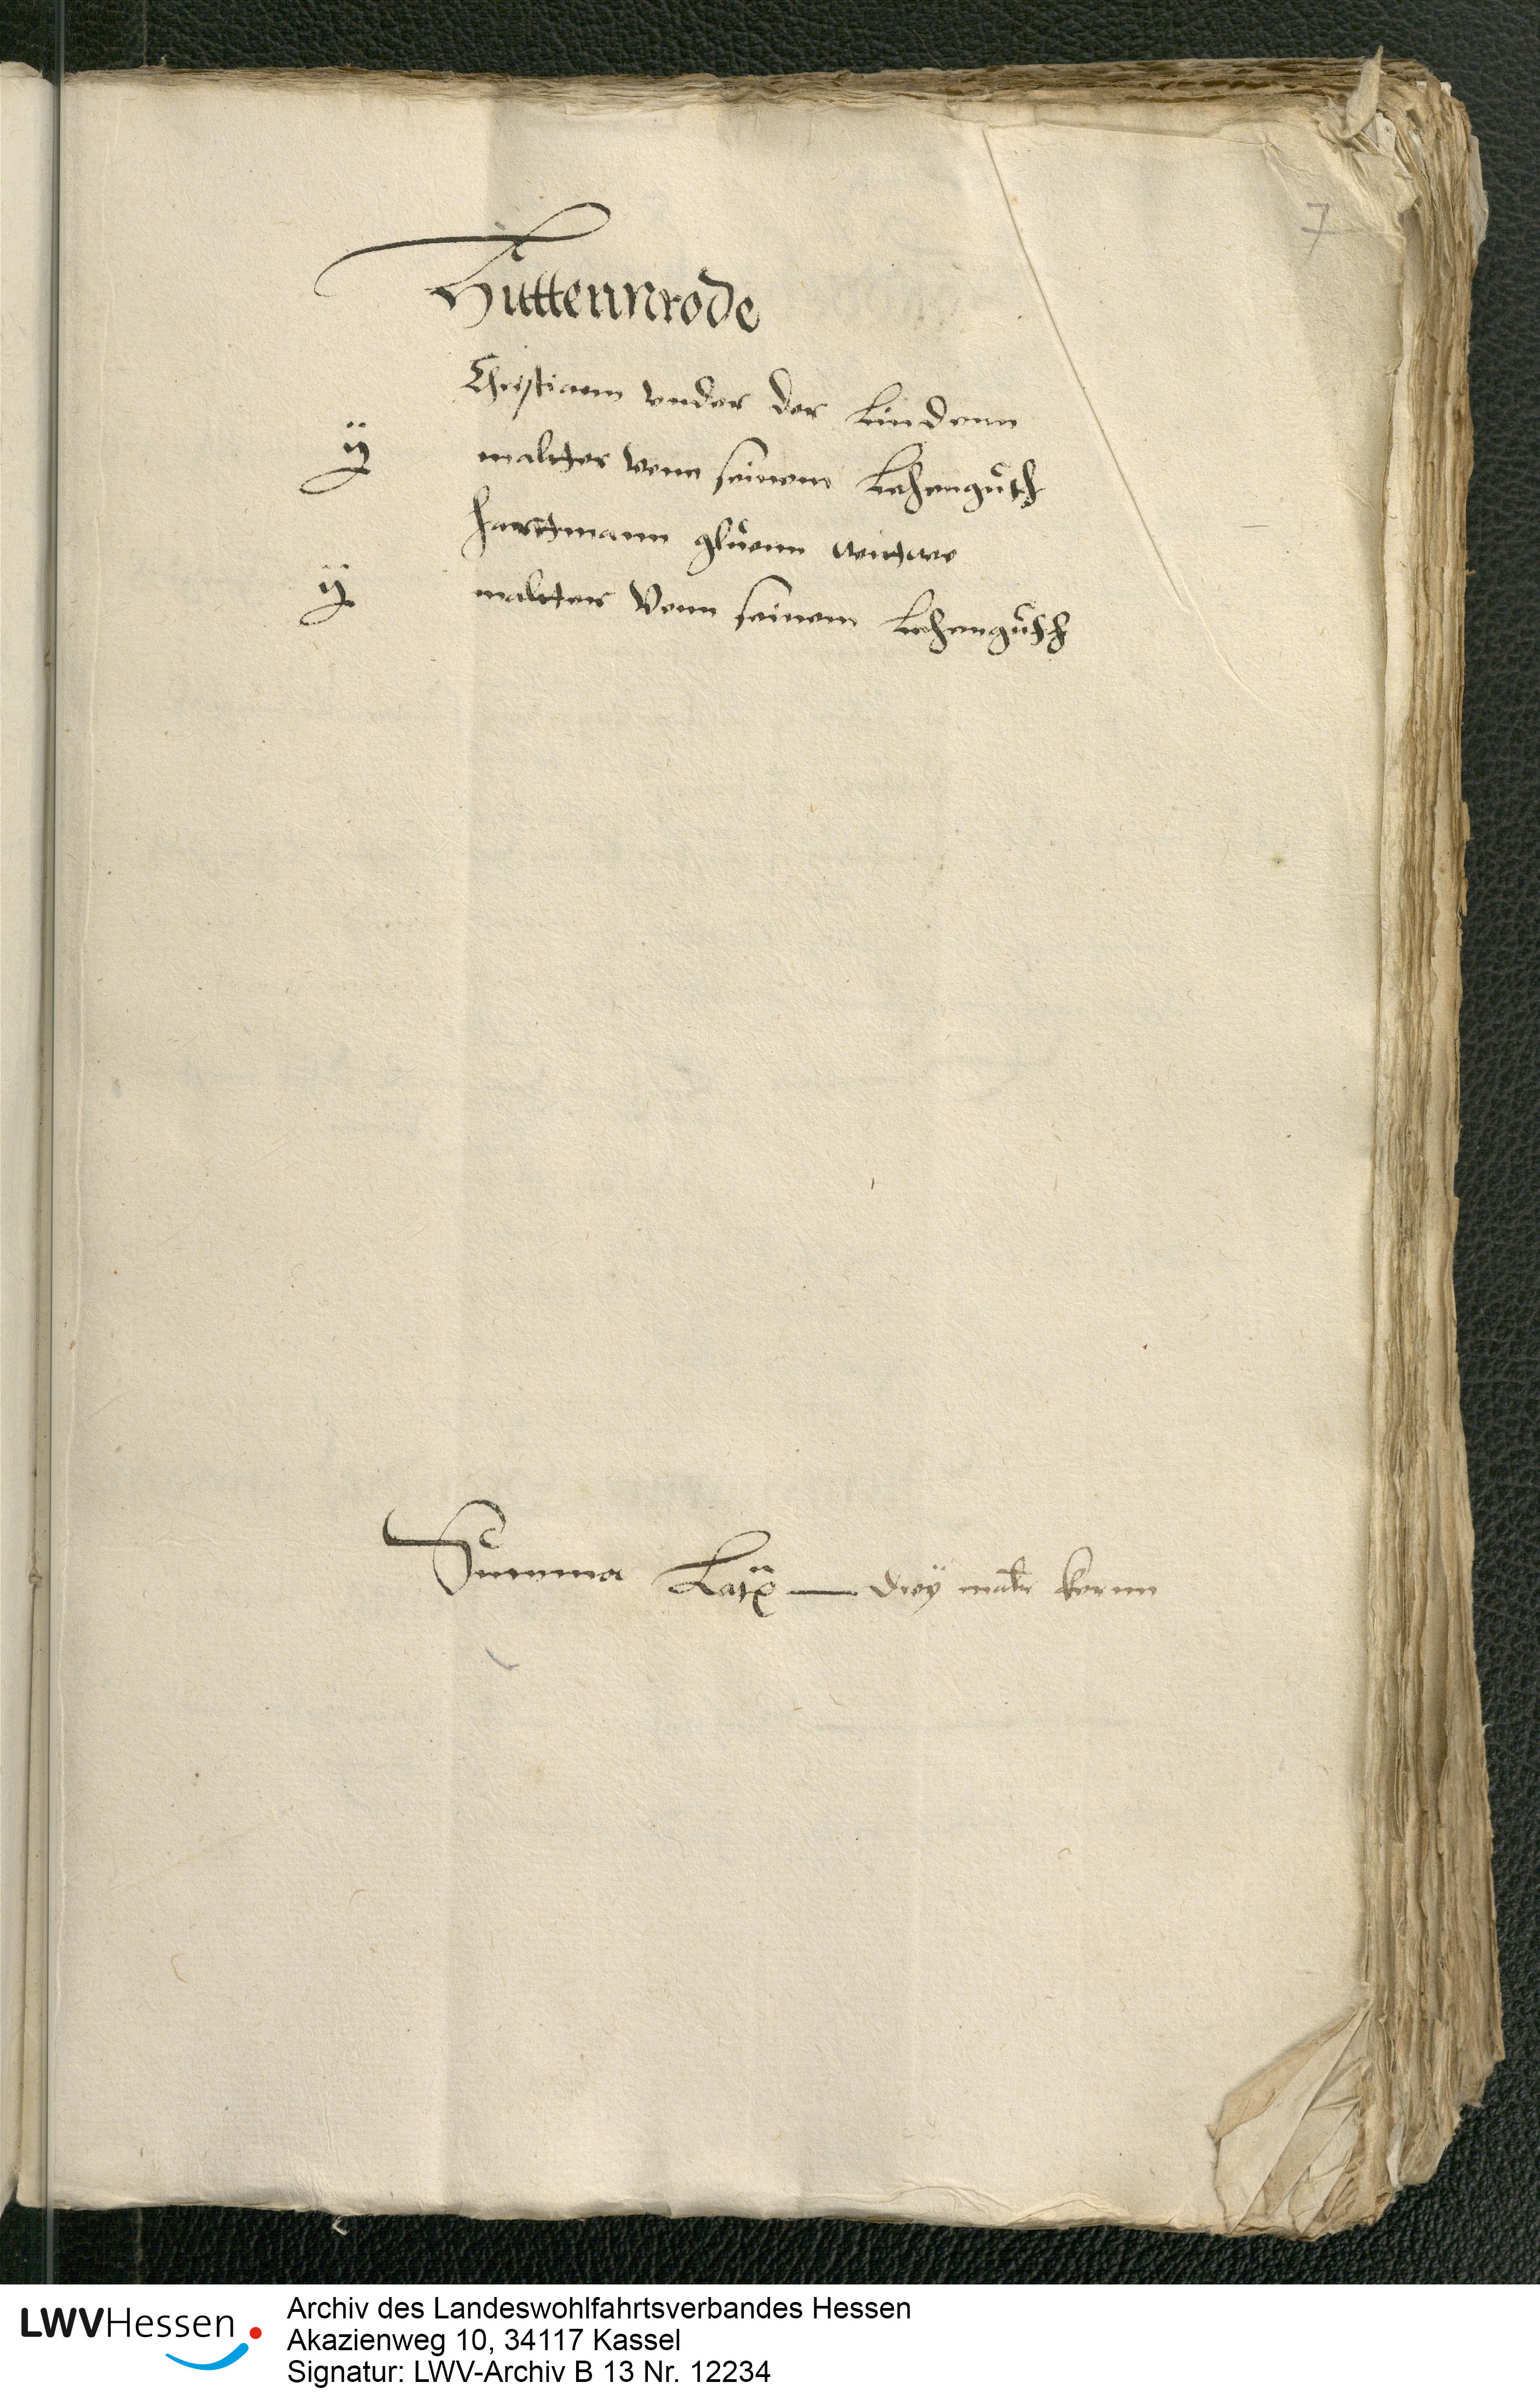 7
Huttennrode
Christiann vnder der Lindenn
ij malter vonn seinem Lehenguth
Harttmann wittwe
ij malter Vonn seinem Lehenguth
Summa drey malter kornn
LWVHessen
Archiv des Landeswohlfahrtsverbandes Hessen
Akazienweg 10, 34117 Kassel
Signatur: LWV-Archiv B 13 Nr. 12234